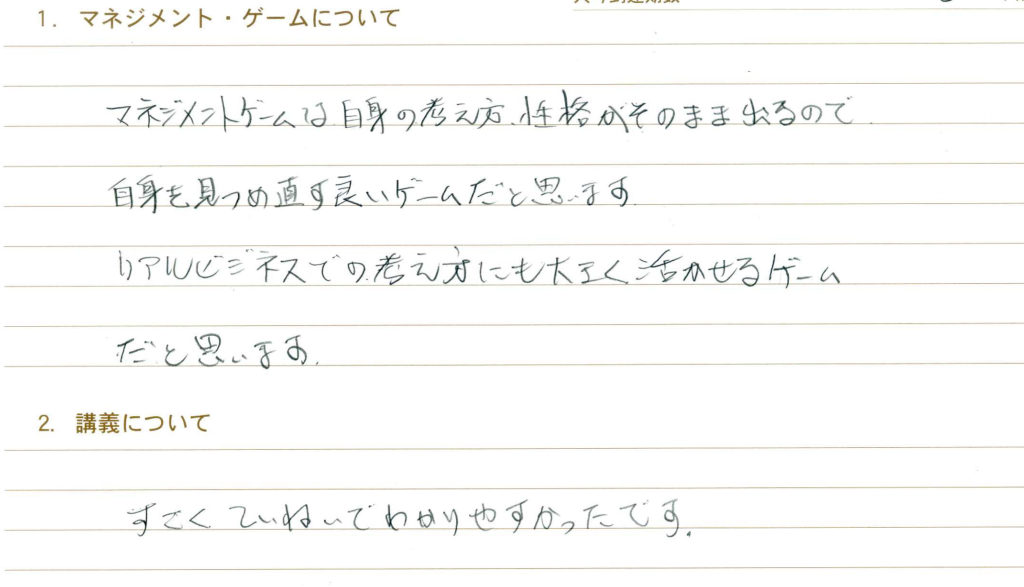 1. マネジメント・ゲームについて
マネジメントゲームは自身の考え方、性格がそのまま出るので
自身を見つめ直す良いゲームだと思います
リアルビジネスでの考え方にも大きく活かせるゲーム
だと思います。
2. 講義について
すごくていねいでわかりやすかったです。